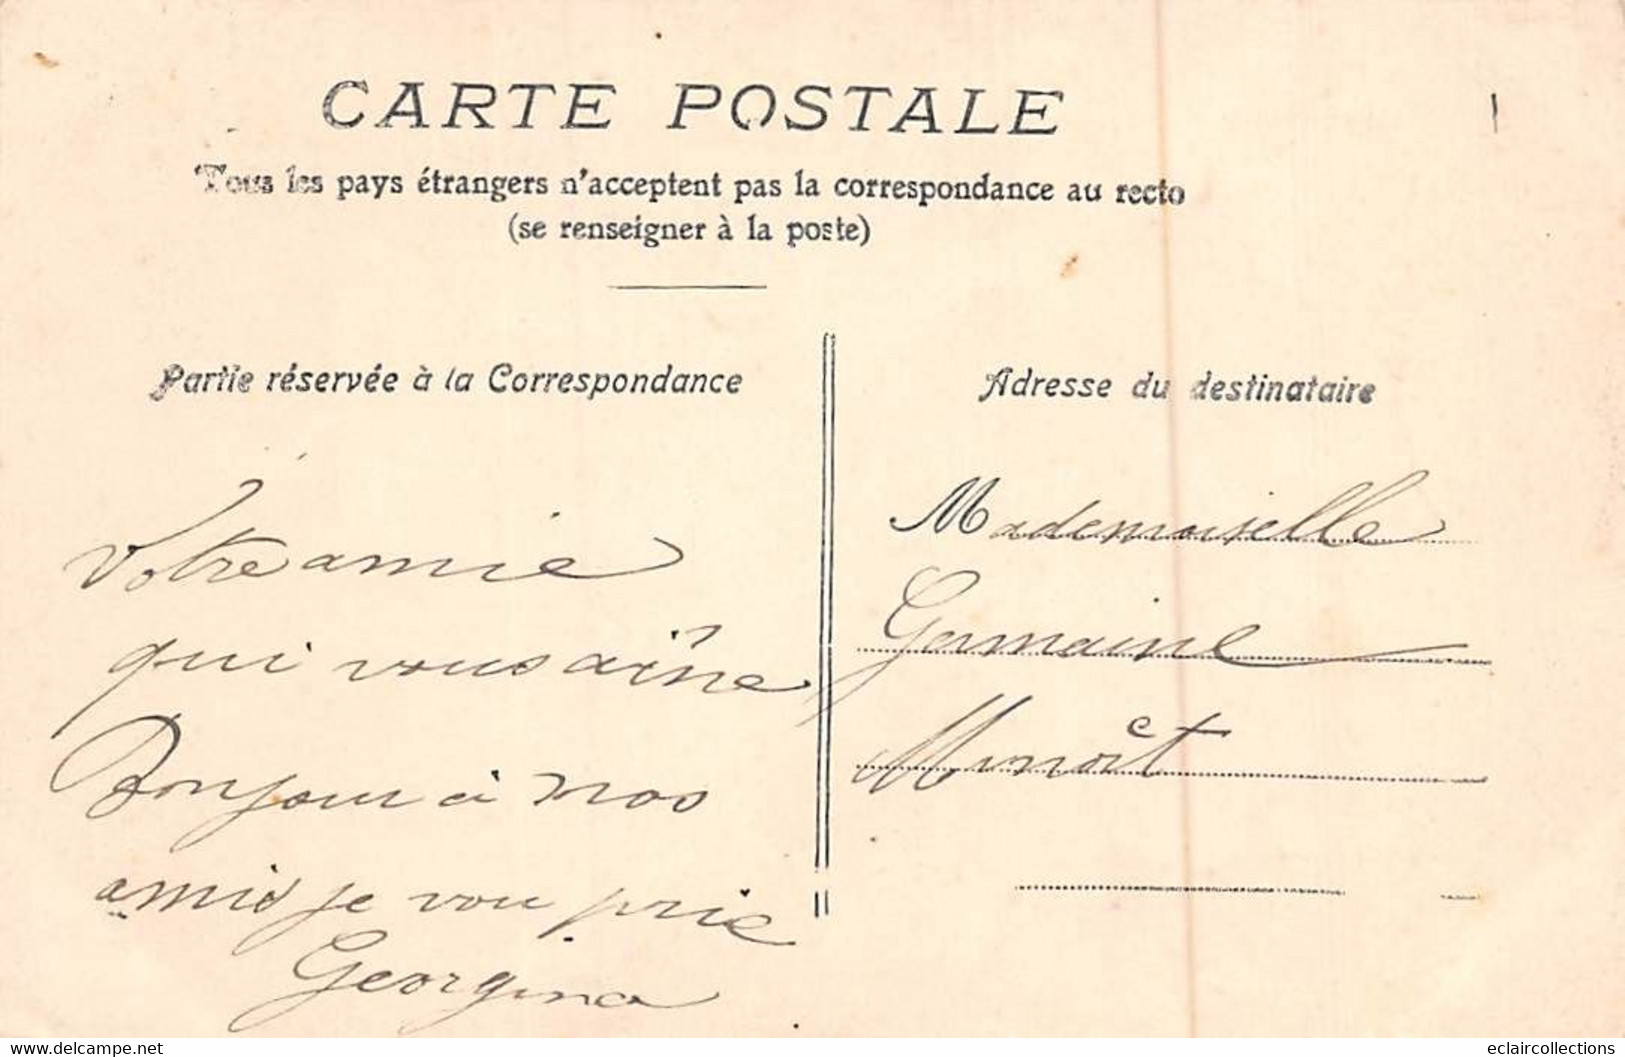 CARTE POSTALE
Tous les pays étrangers n'acceptent pas la correspondance au recto
(se renseigner à la poste)
Partie réservée à la Correspondance
Adresse du destinataire
Votre amie
qui vous aîne
Bonjour à nos
amis je vou prie
Georgina
Mademoiselle
Germaine
eclaircollections